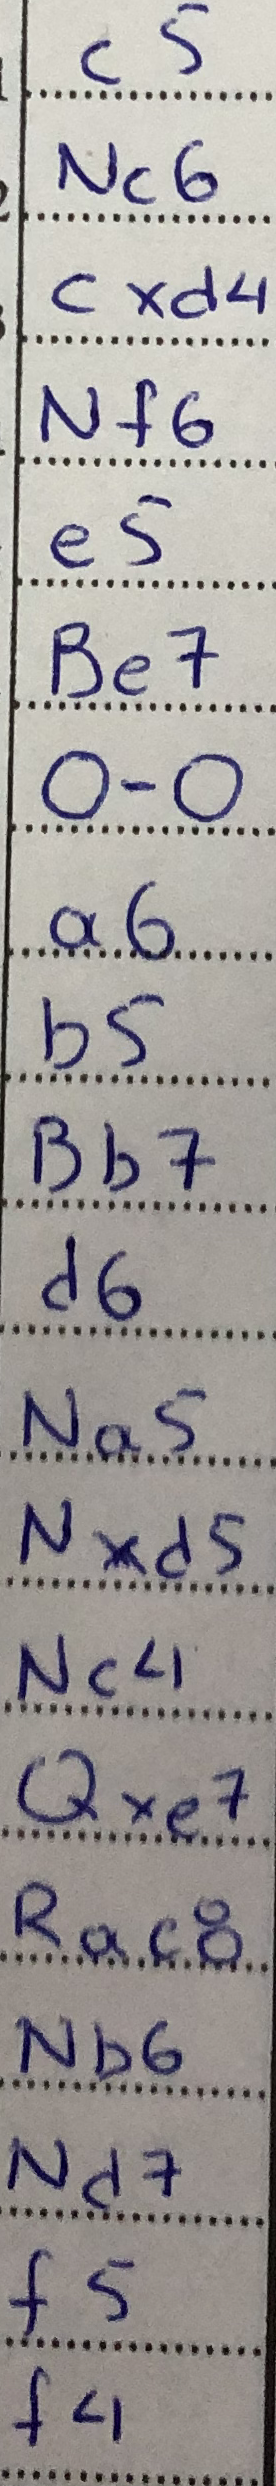 c5
Nc6
cxd4
Nf6
e5
Be7
O-O
a6
b5
Bb7
d6
Na5
Nxd5
Nc4
Qxe7
Rac8
Nb6
Nd7
f5
f4